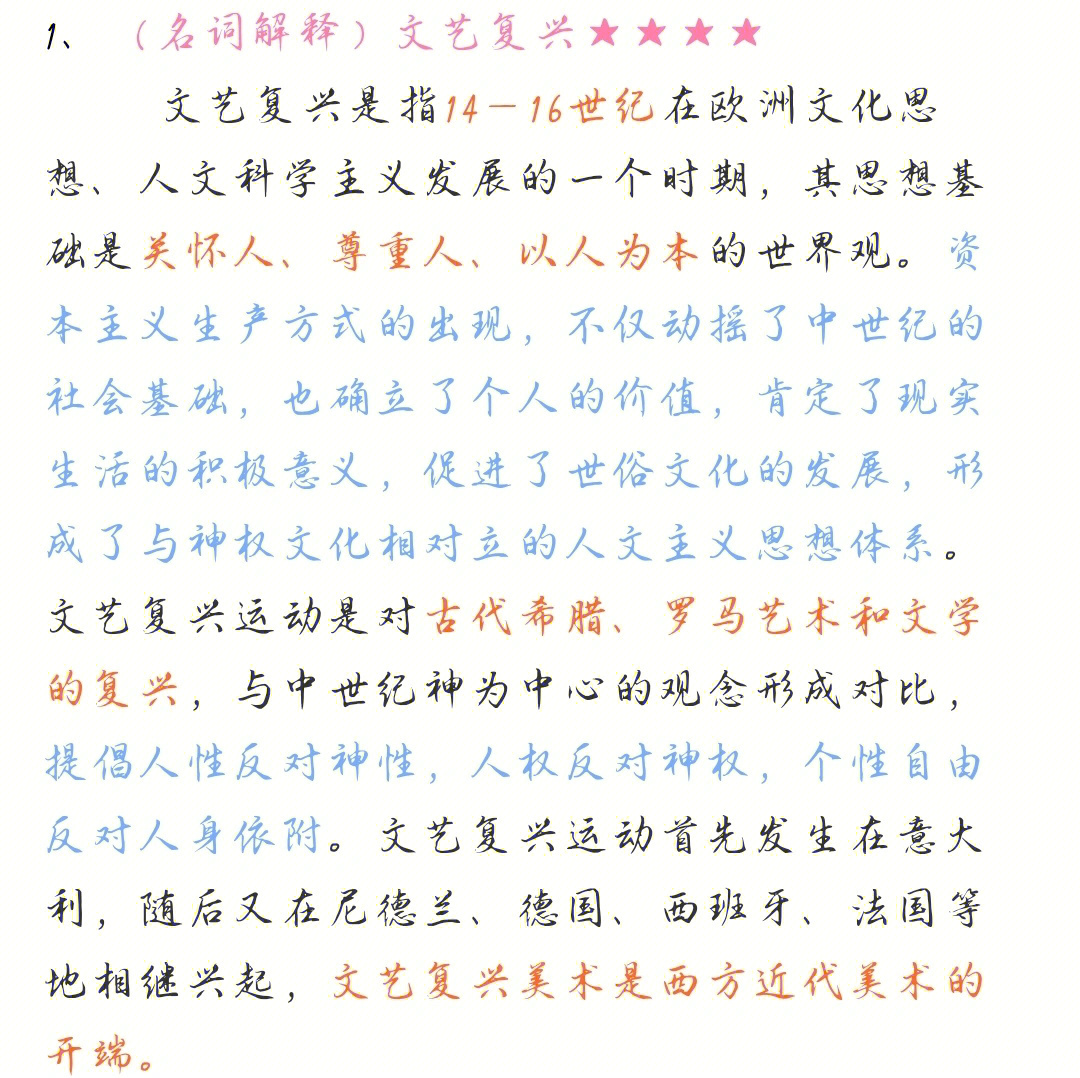 1、（名词解释）文艺复兴★★★★
文艺复兴是指14－16世纪在欧洲文化思
想、人文科学主义发展的一个时期，其思想基
础是关怀人、尊重人、以人为本的世界观。资
本主义生产方式的出现，不仅动摇了中世纪的
社会基础，也确立了个人的价值，肯定了现实
生活的积极意义，促进了世俗文化的发展，形
成了与神权文化相对立的人文主义思想体系。
文艺复兴运动是对古代希腊、罗马艺术和文学
的复兴，与中世纪神为中心的观念形成对比，
提倡人性反对神性，人权反对神权，个性自由
反对人身依附。文艺复兴运动首先发生在意大
利，随后又在尼德兰、德国、西班牙、法国等
地相继兴起，文艺复兴美术是西方近代美术的
开端。